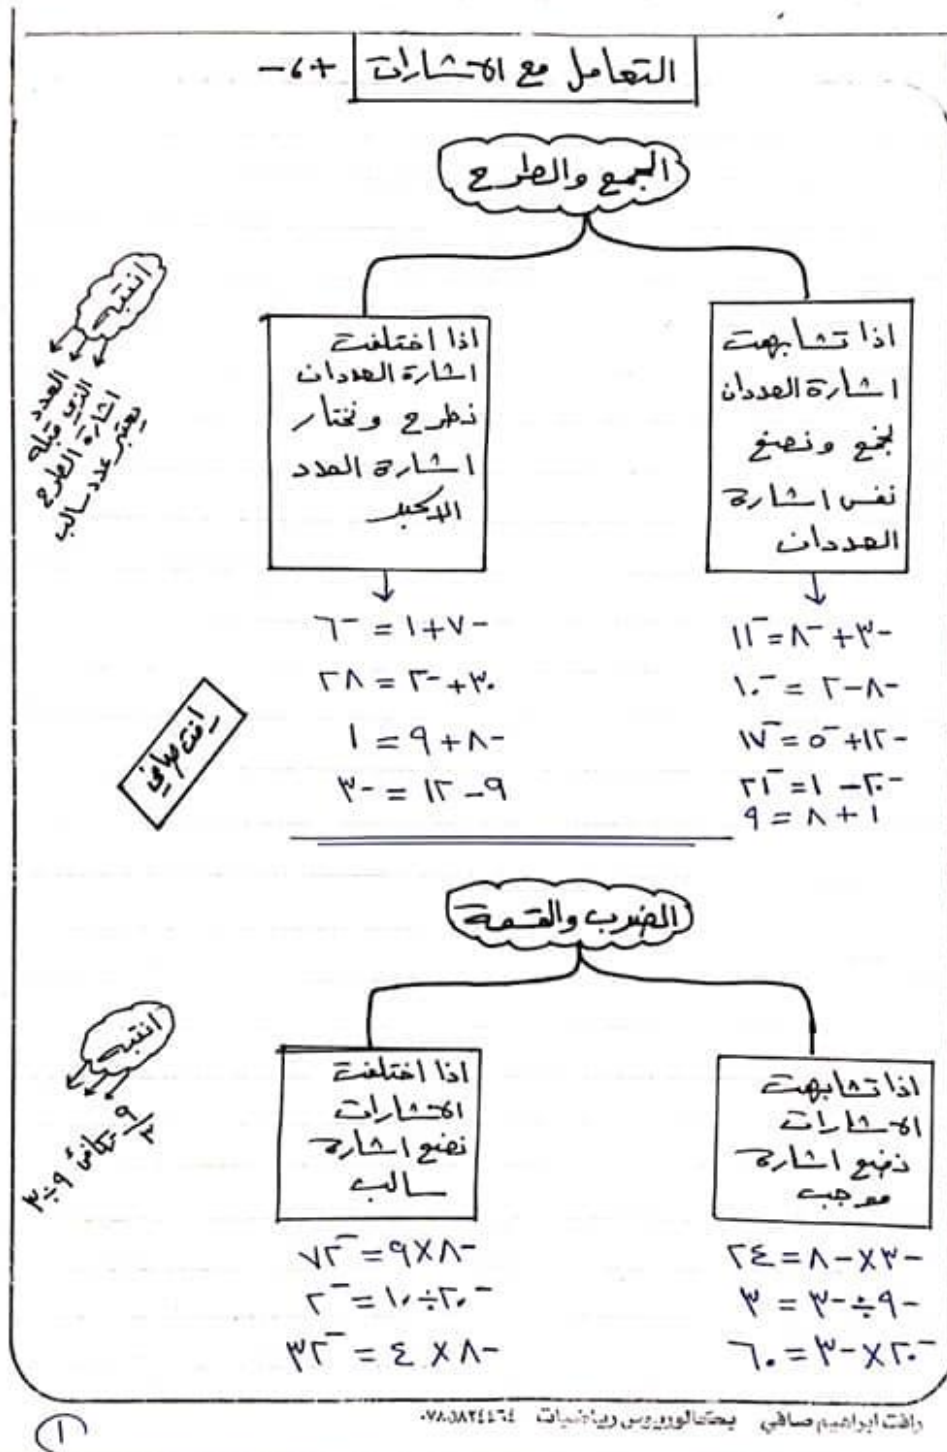 التعامل مع الاشارات + ، -
الجمع والطرح
اذا تشابهت
اشارة العددان
نجمع ونضع
نفس اشارة
العددان
-٣ + -٨ = -١١
-٨ - ٢ = -١٠
-١٢ + -٥ = -١٧
-٢٠ - ١ = -٢١
١ + ٨ = ٩
اذا اختلفت
اشارة العددان
نطرح ونختار
اشارة العدد
الاكبر
-٧ + ١ = -٦
٣٠ + -٢ = ٢٨
-٨ + ٩ = ١
٩ - ١٢ = -٣
انتبه
العدد
الذي قبله
اشارة الطرح
يعتبر عدد سالب
رافت صافي
الضرب والقسمة
اذا تشابهت
الاشارات
نضع اشارة
موجب
-٣ × -٨ = ٢٤
-٩ ÷ -٣ = ٣
-٢٠ × -٣ = ٦٠
اذا اختلفت
الاشارات
نضع اشارة
سالب
-٨ × ٩ = -٧٢
-٢٠ ÷ ١٠ = -٢
-٨ × ٤ = -٣٢
انتبه
٩/٣ تكافئ ٩ ÷ ٣
رافت ابراهيم صافي بكالوريوس رياضيات
١